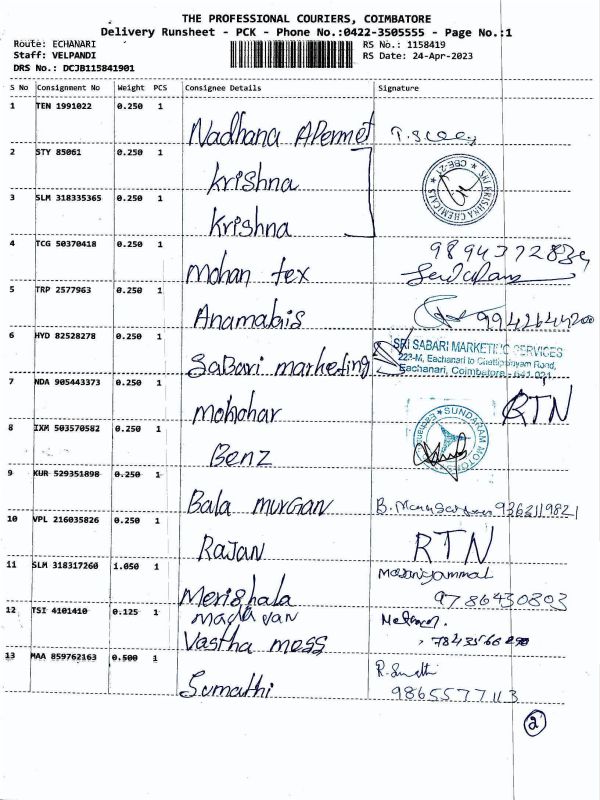 THE PROFESSIONAL COURIERS, COIMBATORE
Delivery Runsheet - PCK - Phone No.:0422-3505555 - Page No.:1
Route: ECHANARI
RS No.: 1158419
Staff: VELPANDI
RS Date: 24-Apr-2023
DRS No.: DCJB115841901
S No Consignment No Weight PCS Consignee Details Signature
1 TEN 1991022 0.250 1
Nadhana
2 STY 85061 0.250 1
Krishna
SRI KRISHNA CHEMICALS ★ CBE-21 ★
3 SLM 318335365 0.250 1
Krishna
4 TCG 50370418 0.250 1
Mohan tex
5 TRP 2577963 0.250 1
Anamabis
6 HYD 82528278 0.250 1
SaBari marketing
SRI SABARI MARKETING SERVICES
223-M, Eachanari to Road,
Eachanari, Coimbatore - 641 021
7 NDA 905443373 0.250 1
Mohohar RTN
8 IXM 503570582 0.250 1
Benz
SUNDARAM MOTORS
9 KUR 529351898 0.250 1
Bala murgan 9362119821
10 VPL 216035826 0.250 1
Rajan RTN
11 SLM 318317260 1.050 1
Merishala 9786430803
12 TSI 4101410 0.125 1
Vastha mess
13 MAA 859762163 0.500 1
Sumathi 9865577113
2